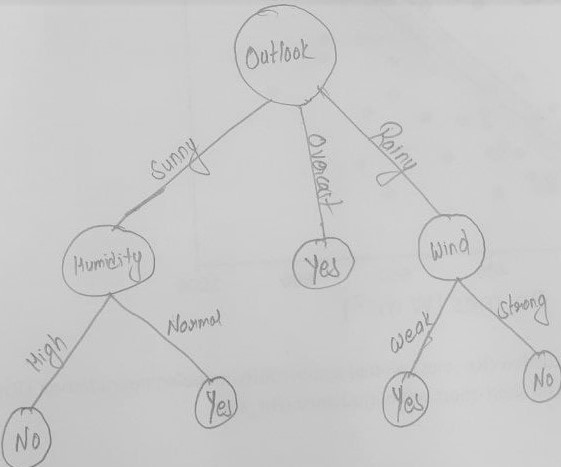 Outlook
Sunny
Overcast
Rainy
Humidity
Yes
Wind
High
Normal
Weak
Strong
No
Yes
Yes
No